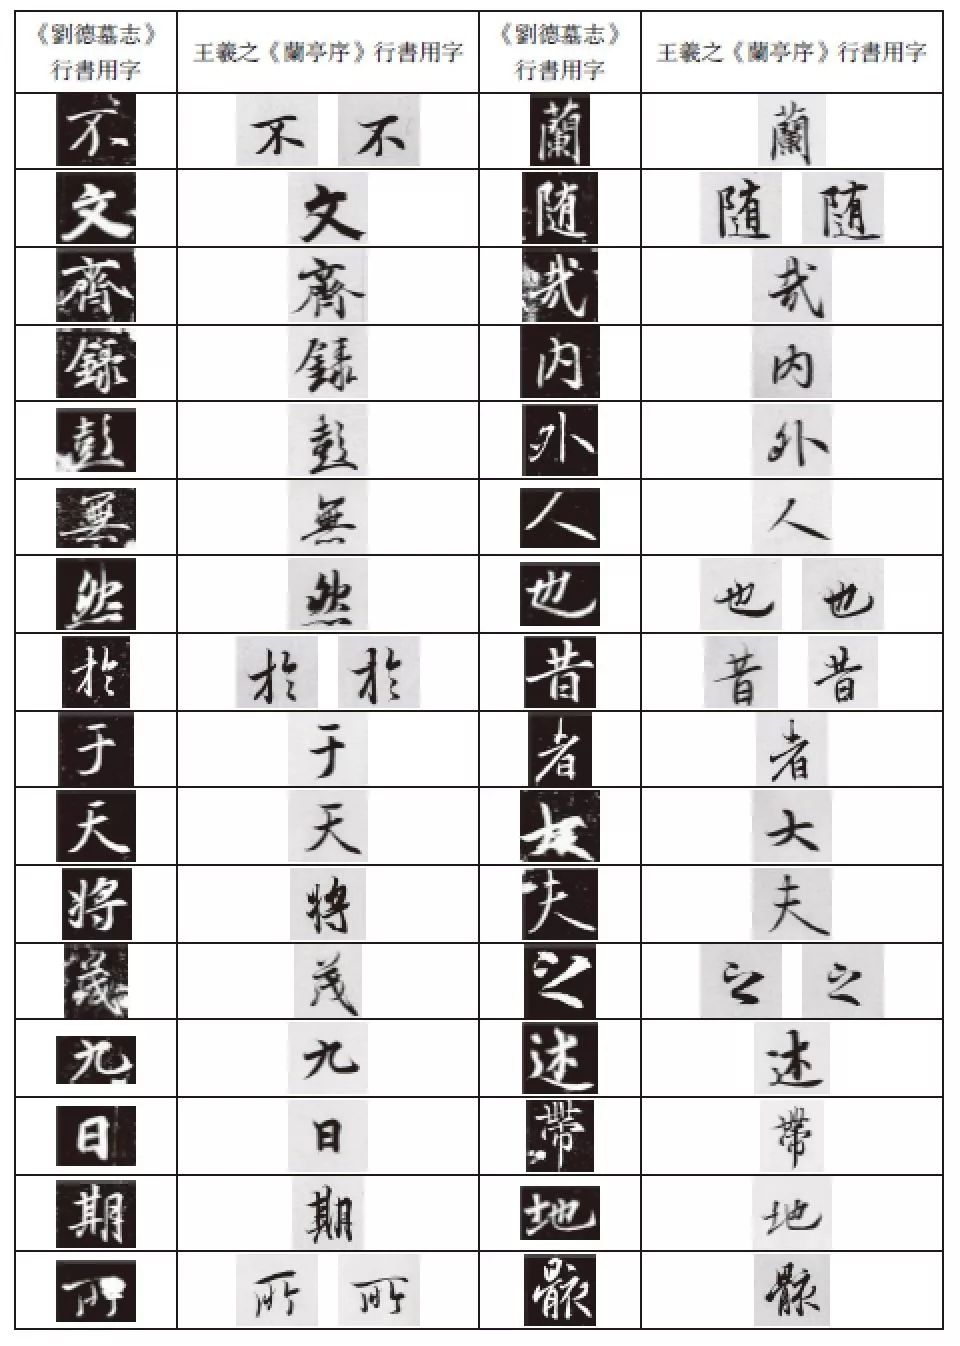 《劉德墓志》行書用字 王羲之《蘭亭序》行書用字 《劉德墓志》行書用字 王羲之《蘭亭序》行書用字
不 不 不 蘭 蘭
文 文 随 随 随
齊 齊 哉 哉
録 録 内 内
彭 彭 外 外
無 無 人 人
然 然 也 也 也
於 於 於 昔 昔 昔
于 于 者 者
天 天 大 大
將 將 夫 夫
茂 茂 之 之 之
九 九 述 述
日 日 帶 帶
期 期 地 地
所 所 所 骸 骸